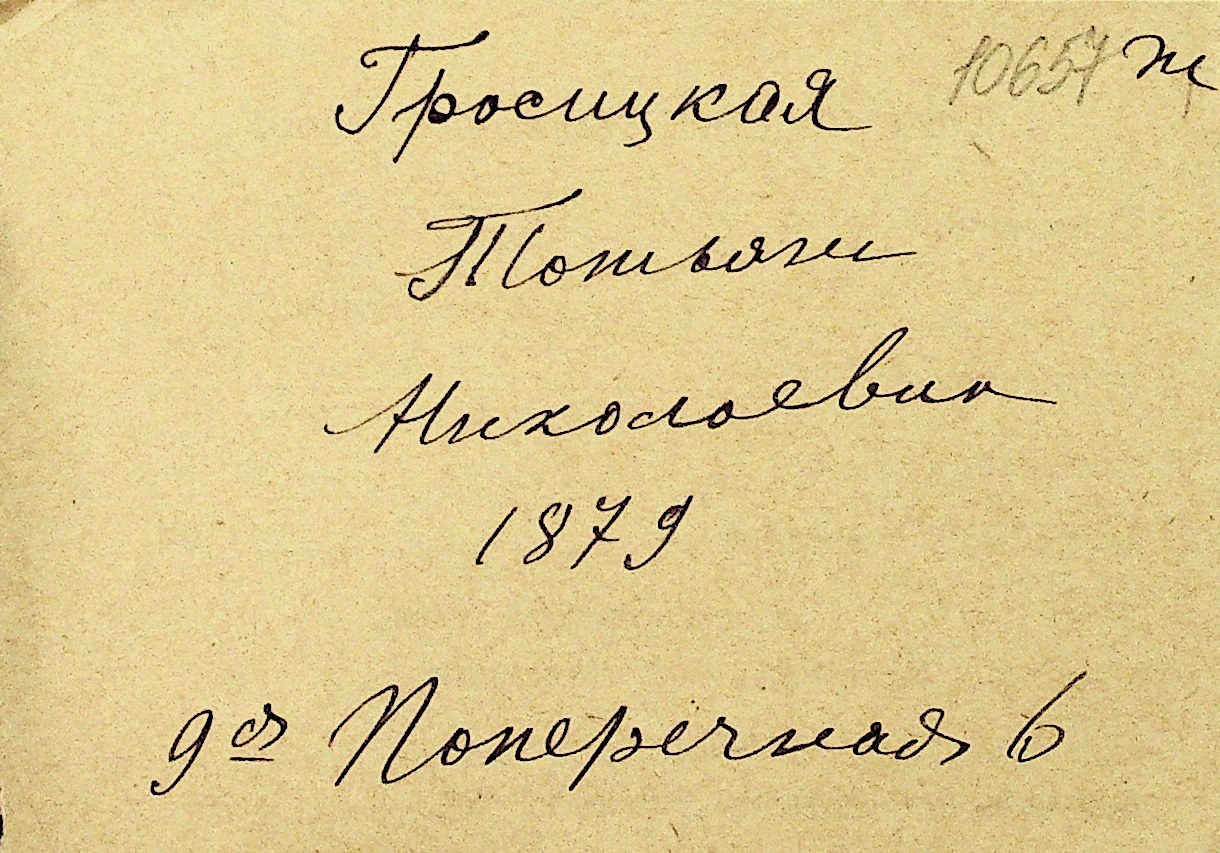 Гросицкая 10657 Ж
Татьяна
Николаевна
1879
9ая Поперечная 6